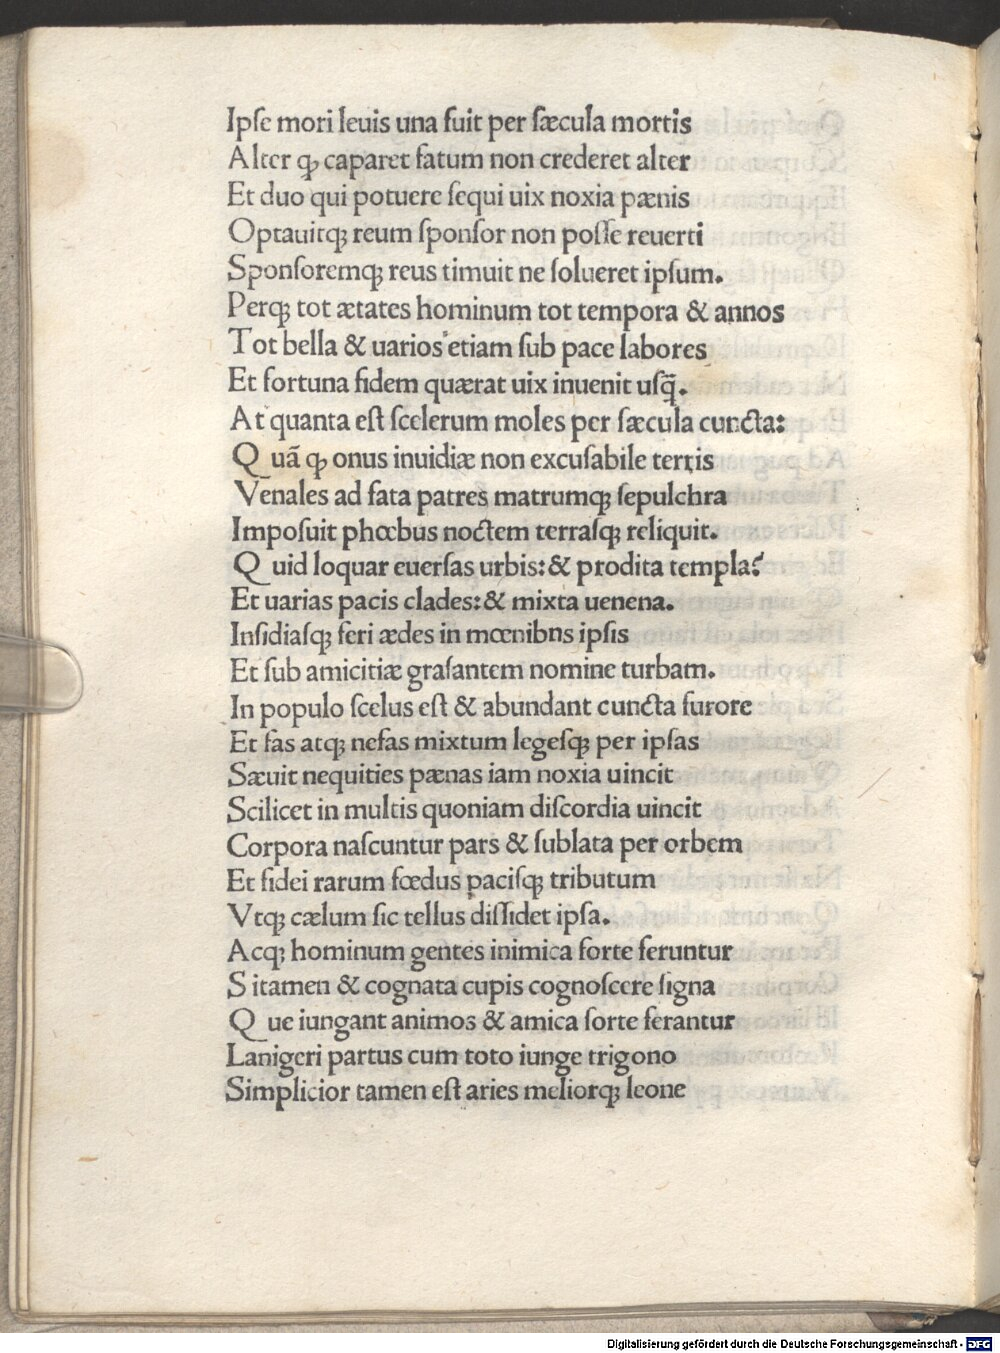 Ipſe mori leuis una fuit per ſæcula mortis
Alter ꝙ caparet fatum non crederet alter
Et duo qui potuere ſequi uix noxia pænis
Optauitqꝫ reum ſponſor non poſſe reuerti
Sponſoremqꝫ reus timuit ne ſolueret ipſum.
Perqꝫ tot ætates hominum tot tempora & annos
Tot bella & uarios etiam ſub pace labores
Et fortuna fidem quærat uix inuenit uſq̄.
At quanta eſt ſcelerum moles per ſæcula cuncta:
Q uā ꝙ onus inuidiæ non excuſabile terris
Venales ad fata patres matrumqꝫ ſepulchra
Impoſuit phœbus noctem terraſqꝫ reliquit.
Q uid loquar euerſas urbis: & prodita templa?
Et uarias pacis clades: & mixta uenena.
Inſidiaſqꝫ feri ædes in mœnibns ipſis
Et ſub amicitiæ graſantem nomine turbam.
In populo ſcelus eſt & abundant cuncta furore
Et fas atqꝫ nefas mixtum legeſqꝫ per ipſas
Sæuit nequities pænas iam noxia uincit
Scilicet in multis quoniam diſcordia uincit
Corpora naſcuntur pars & ſublata per orbem
Et fidei rarum fœdus paciſqꝫ tributum
Vtqꝫ cælum ſic tellus diſſidet ipſa.
Acqꝫ hominum gentes inimica ſorte feruntur
S itamen & cognata cupis cognoſcere ſigna
Q ue iungant animos & amica ſorte ferantur
Lanigeri partus cum toto iunge trigono
Simplicior tamen eſt aries meliorqꝫ leone
Digitalisierung gefördert durch die Deutsche Forschungsgemeinschaft - DFG